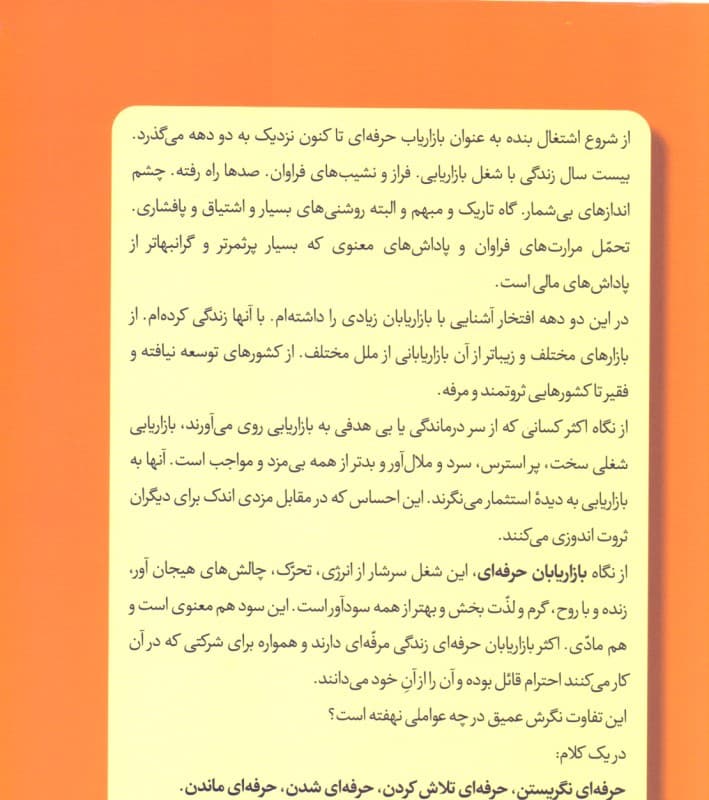 از شروع اشتغال بنده به عنوان بازاریاب حرفه‌ای تا کنون نزدیک به دو دهه می‌گذرد.
بیست سال زندگی با شغل بازاریابی. فراز و نشیب‌های فراوان. صدها راه رفته. چشم
اندازهای بی‌شمار. گاه تاریک و مبهم و البته روشنی‌های بسیار و اشتیاق و پافشاری.
تحمّل مرارت‌های فراوان و پاداش‌های معنوی که بسیار پرثمرتر و گرانبهاتر از
پاداش‌های مالی است.
در این دو دهه افتخار آشنایی با بازاریابان زیادی را داشته‌ام. با آنها زندگی کرده‌ام. از
بازارهای مختلف و زیباتر از آن بازاریابانی از ملل مختلف. از کشورهای توسعه نیافته و
فقیر تا کشورهایی ثروتمند و مرفه.
از نگاه اکثر کسانی که از سر درماندگی یا بی هدفی به بازاریابی روی می‌آورند، بازاریابی
شغلی سخت، پر استرس، سرد و ملال‌آور و بدتر از همه بی‌مزد و مواجب است. آنها به
بازاریابی به دیدهٔ استثمار می‌نگرند. این احساس که در مقابل مزدی اندک برای دیگران
ثروت اندوزی می‌کنند.
از نگاه بازاریابان حرفه‌ای، این شغل سرشار از انرژی، تحرّک، چالش‌های هیجان آور،
زنده و با روح، گرم و لذّت بخش و بهتر از همه سودآور است. این سود هم معنوی است و
هم مادّی. اکثر بازاریابان حرفه‌ای زندگی مرفّه‌ای دارند و همواره برای شرکتی که در آن
کار می‌کنند احترام قائل بوده و آن را از آنِ خود می‌دانند.
این تفاوت نگرش عمیق در چه عواملی نهفته است؟
در یک کلام:
حرفه‌ای نگریستن، حرفه‌ای تلاش کردن، حرفه‌ای شدن، حرفه‌ای ماندن.